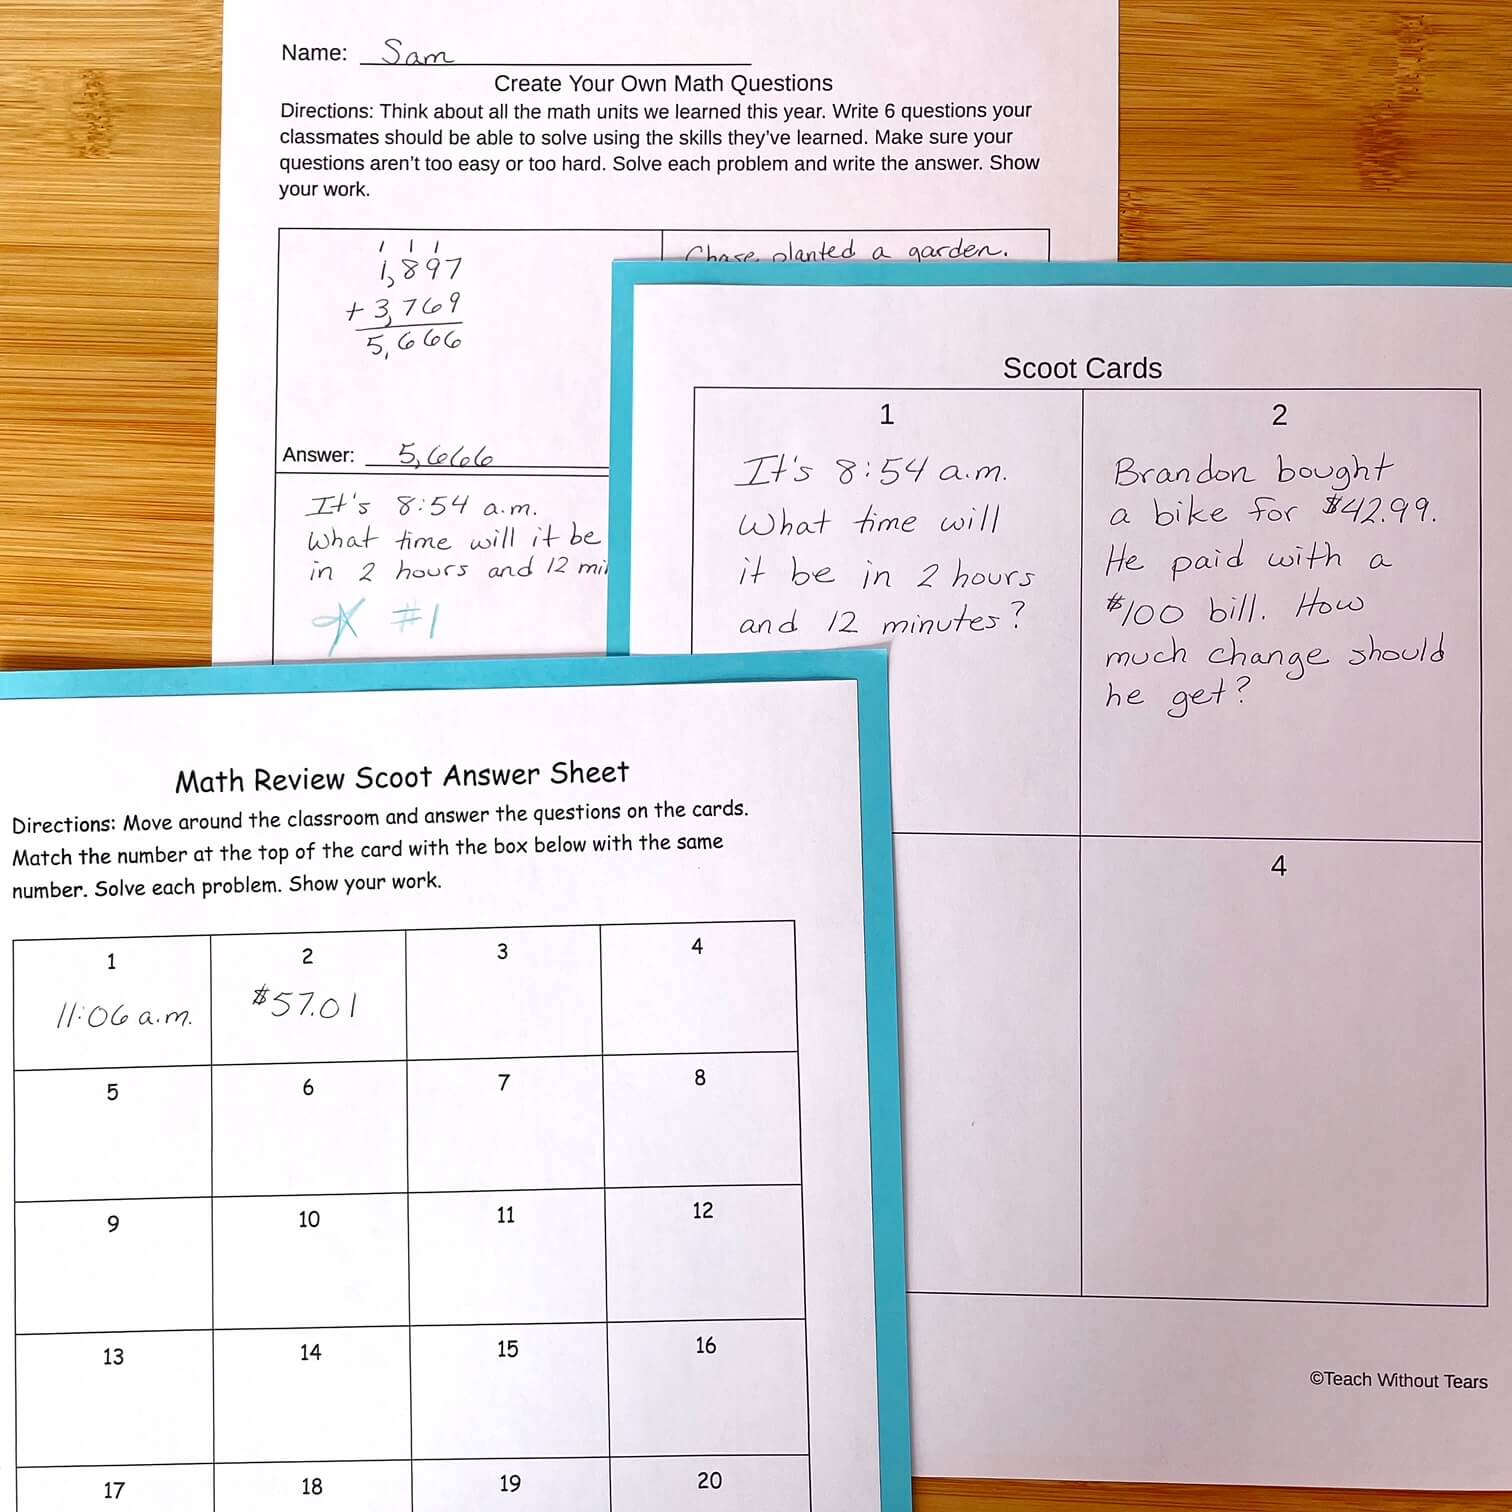 Name: Sam
Create Your Own Math Questions
Directions: Think about all the math units we learned this year. Write 6 questions your
classmates should be able to solve using the skills they've learned. Make sure your
questions aren't too easy or too hard. Solve each problem and write the answer. Show
your work.
1 1 1
1,897
+ 3,769
5,666
Answer: 5,666
Chase planted a garden.
It's 8:54 a.m.
What time will it be
in 2 hours and 12
#1
Scoot Cards
1
It's 8:54 a.m.
What time will
it be in 2 hours
and 12 minutes?
2
Brandon bought
a bike for $42.99.
He paid with a
$100 bill. How
much change should
he get?
4
©Teach Without Tears
Math Review Scoot Answer Sheet
Directions: Move around the classroom and answer the questions on the cards.
Match the number at the top of the card with the box below with the same
number. Solve each problem. Show your work.
1 2 3 4
11:06 a.m. $57.01
5 6 7 8
9 10 11 12
13 14 15 16
17 18 19 20